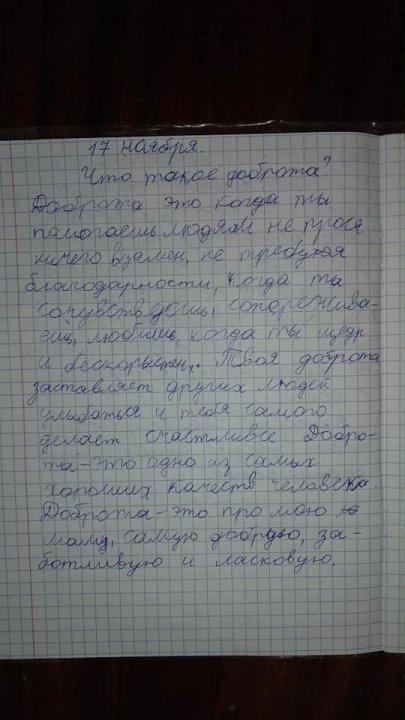 17 ноября.
Что такое доброта?
Доброта это когда ты
памогаешь людям не прося
ничего взамен, не требуюя
благодарности, когда ты
сочувствуешь, сопережива-
ешь, любишь, когда ты щедр
и бескорыстен. Твоя доброта
заставляет других людей
улыбаться и тебя самого
делает счастливее. Добро-
та-это одно из самых
хороших качеств человека
Доброта-это про мою
маму, самую добрую, за-
ботливую и ласковую.